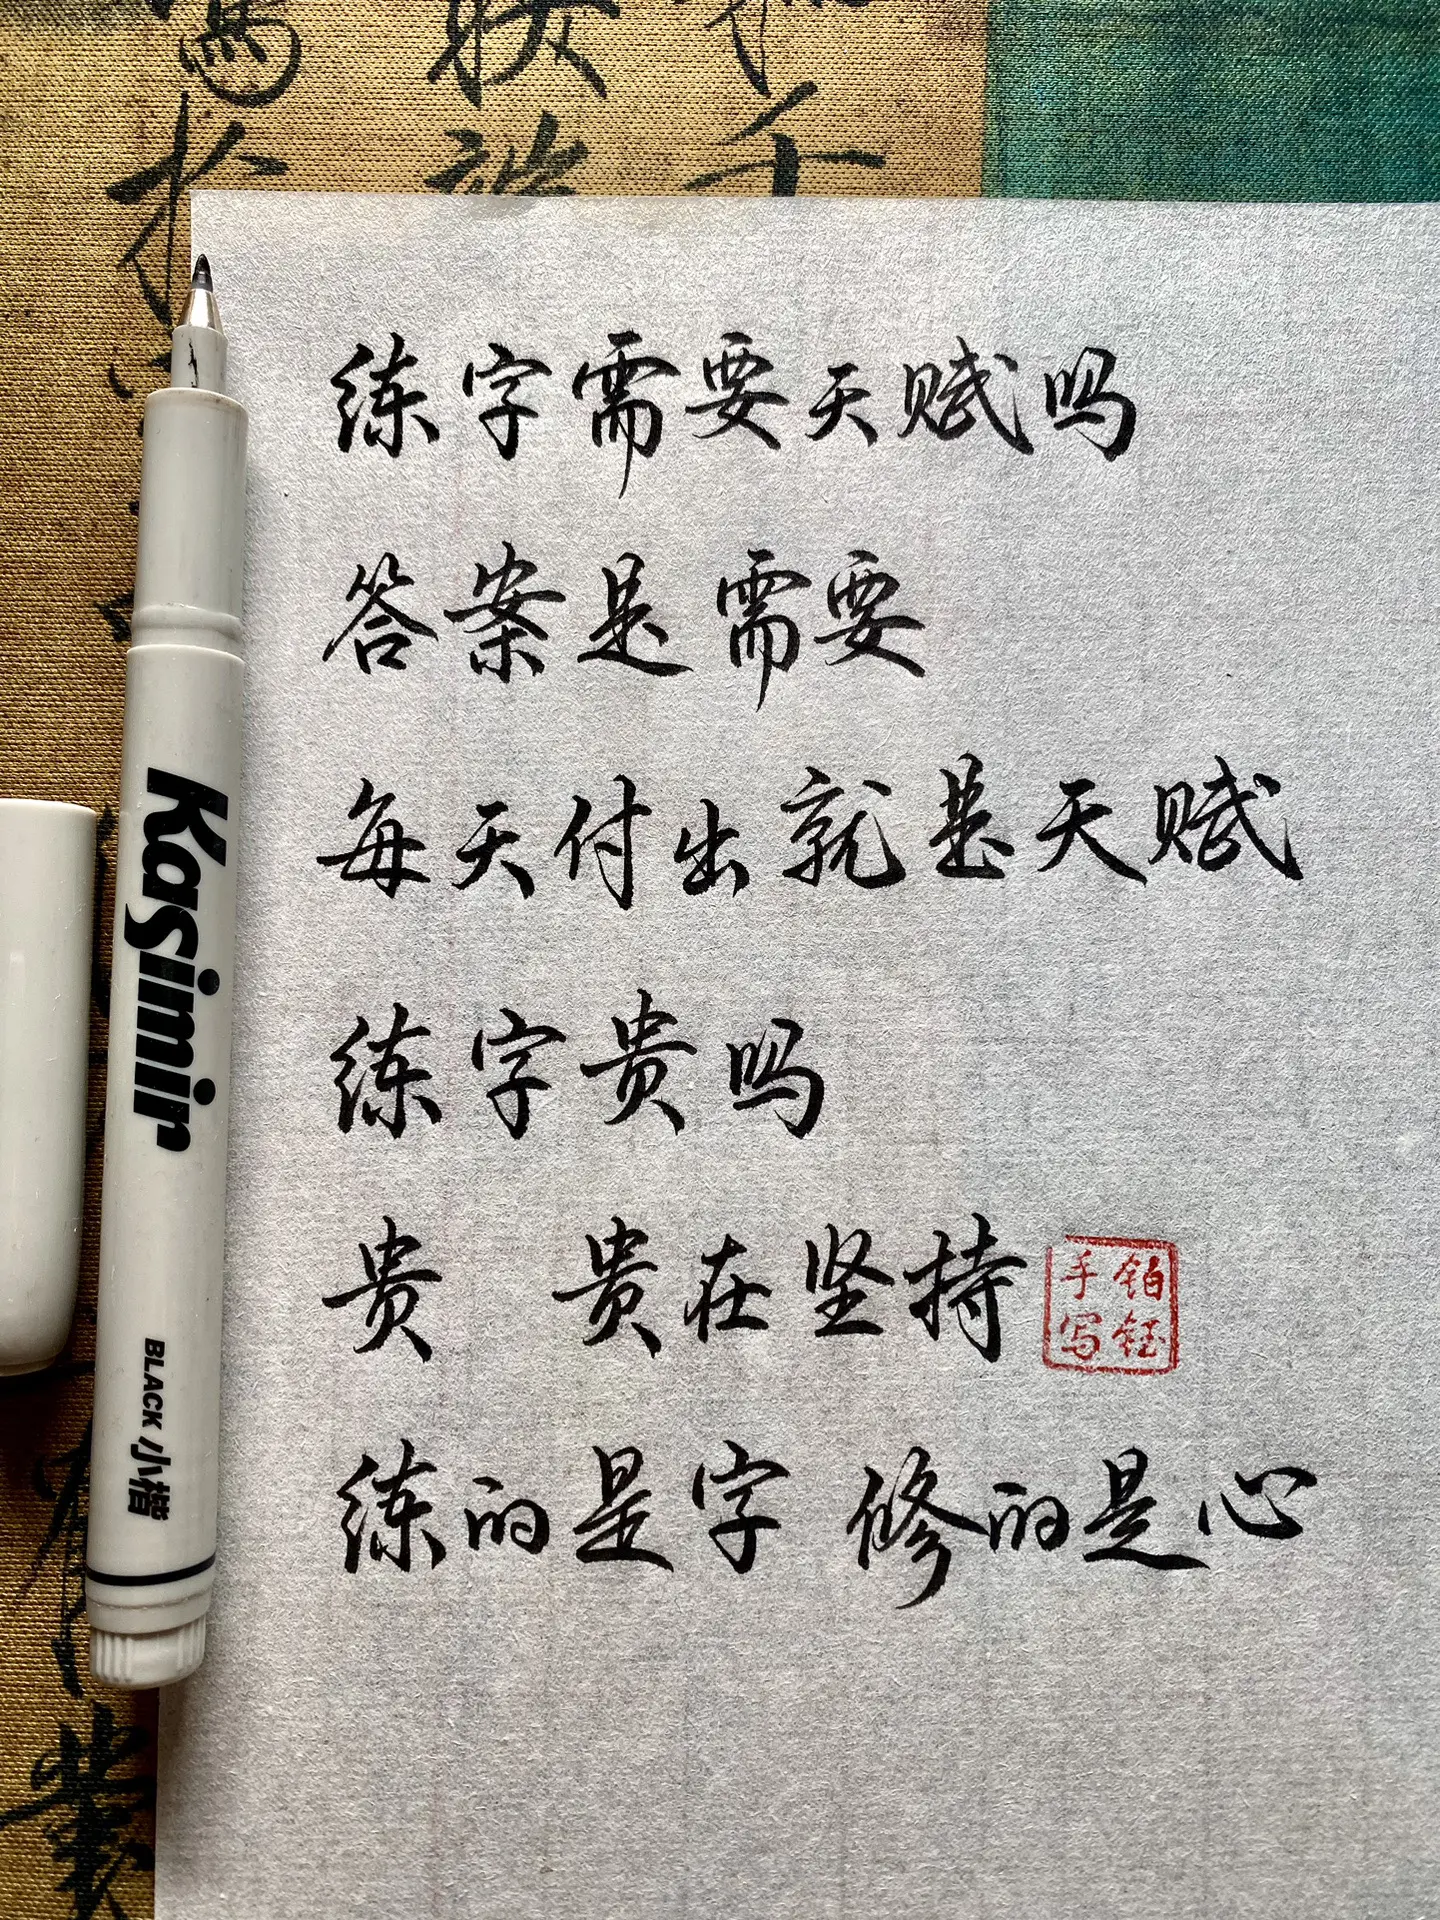 练字需要天赋吗
答案是需要
每天付出就是天赋
练字贵吗
贵 贵在坚持
铂钰
手写
练的是字 修的是心
Kasimir
BLACK 小楷